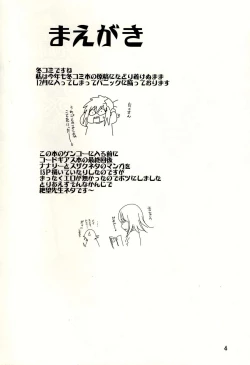 まえがき
冬コミですね
私は今年も冬コミ本の原稿にたどり着けぬまま
12月に入ってしまってパニックに陥っております
この本のゲンコーに入る前に
コードギアス本の最終回後
ナナリーとスザクネタのマンガを
15P描いていたりしたのですが
まったくエロが無かったのでボツにしました
とりあえずそんなかんじで
絶望先生ネタです〜
4